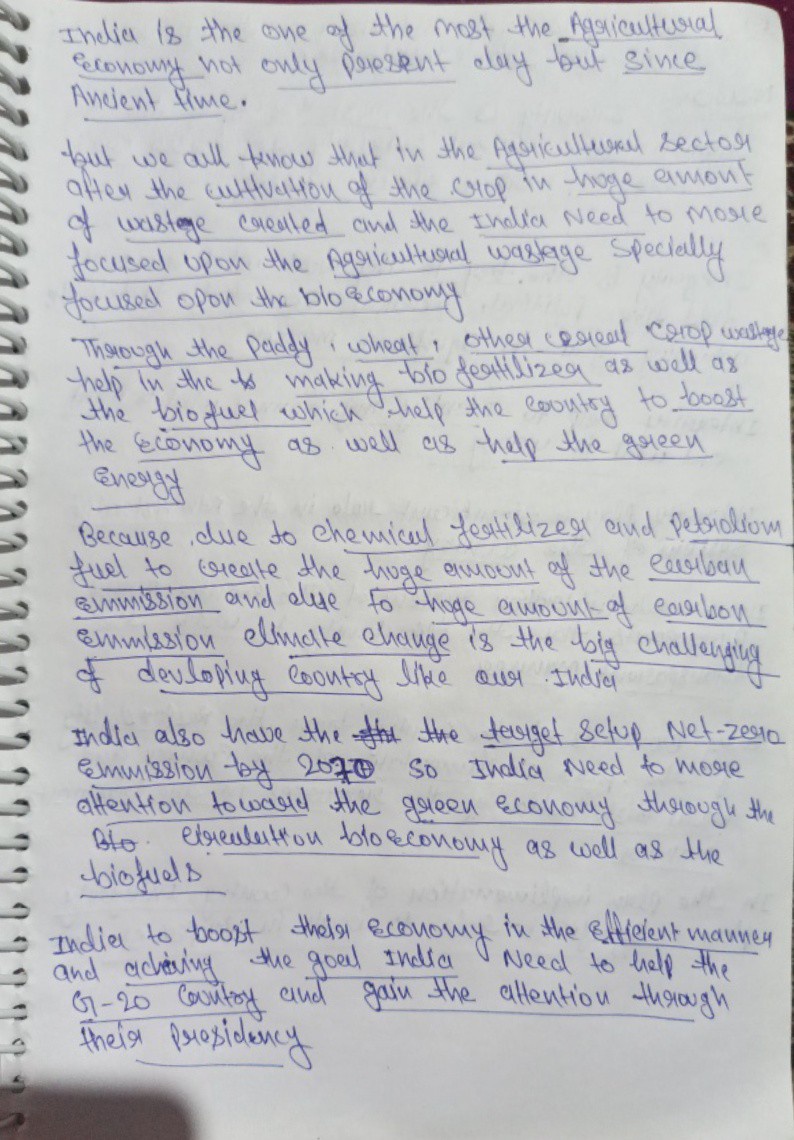 India is the one of the most the Agricultural
Economy not only present day but since
Ancient time.
but we all know that in the Agricultural sector
after the cultivation of the crop in hoge amount
of wastage created and the India Need to more
focused upon the Agricultural wastage specially
focused opon the bioeconomy
Through the Paddy, wheat, other cereal crop wastage
help in the to making bio fertilizer as well as
the biofuel which help the country to boost
the Economy as well as help the green
Energy
Because due to chemical fertilizer and Petrolium
fuel to create the hoge amount of the carban
Emmission and due to hoge amount of carbon
Emmission climate change is the big challenging
of devloping country like our India
India also have the the target setup Net-zero
Emmission by 2070 so India Need to more
attention toward the green economy through the
Bio circulation bioeconomy as well as the
biofuels
India to boost their Economy in the Efficient manner
and achiving the goal India Need to help the
G-20 Country and gain the attention through
their Presidency